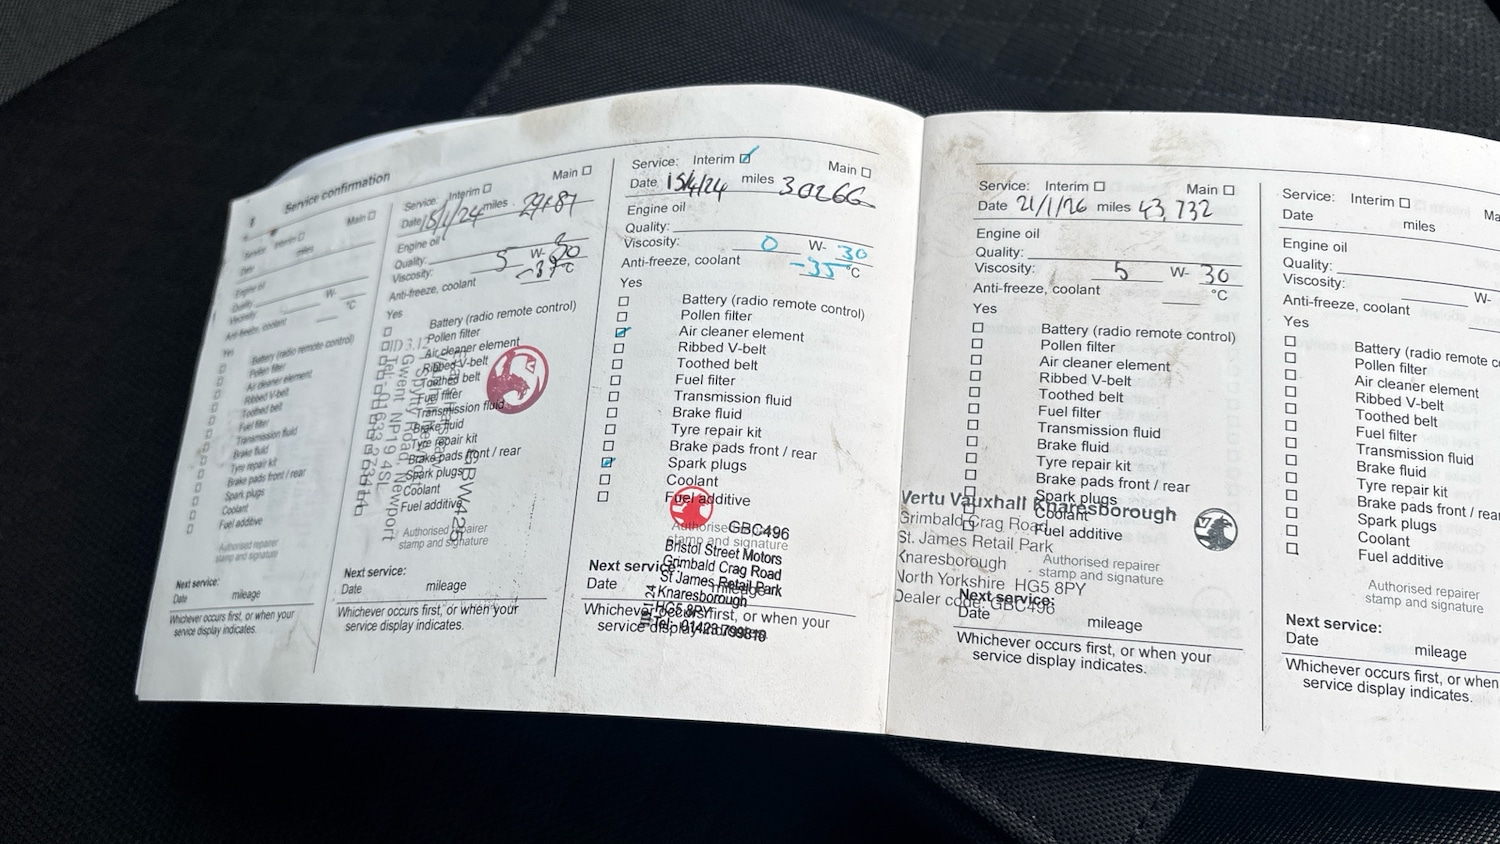 Service confirmation
Main
Service: Interim
Date miles
Engine oil
Quality:
Viscosity: W-
Anti-freeze, coolant °C
Yes
Battery (radio remote control)
Pollen filter
Air cleaner element
Ribbed V-belt
Toothed belt
Fuel filter
Transmission fluid
Brake fluid
Tyre repair kit
Brake pads front / rear
Spark plugs
Coolant
Fuel additive
Authorised repairer
stamp and signature
Next service:
Date mileage
Whichever occurs first, or when your
service display indicates.
Service: Interim Main
Date 15/1/24 miles
Engine oil
Quality:
Viscosity: 5 W- 30
Anti-freeze, coolant °C
Yes
Battery (radio remote control)
Pollen filter
Air cleaner element
Ribbed V-belt
Toothed belt
Fuel filter
Transmission fluid
Brake fluid
Tyre repair kit
Brake pads front / rear
Spark plugs
Coolant
Fuel additive
Spytty Road, Newport
Gwent NP19 4SL
Authorised repairer
stamp and signature
Next service:
Date mileage
Whichever occurs first, or when your
service display indicates.
Service: Interim Main
Date 15/4/24 miles 30266
Engine oil
Quality:
Viscosity: 0 W- 30
Anti-freeze, coolant -35 °C
Yes
Battery (radio remote control)
Pollen filter
Air cleaner element
Ribbed V-belt
Toothed belt
Fuel filter
Transmission fluid
Brake fluid
Tyre repair kit
Brake pads front / rear
Spark plugs
Coolant
Fuel additive
GBC496
Authorised
stamp and signature
Bristol Street Motors
Grimbald Crag Road
St James Retail Park
Knaresborough
HG5 8PY
Tel: 01423 799810
Next service:
Date mileage
Whichever occurs first, or when your
service display indicates.
Service: Interim Main
Date 21/1/26 miles 43,732
Engine oil
Quality:
Viscosity: 5 W- 30
Anti-freeze, coolant °C
Yes
Battery (radio remote control)
Pollen filter
Air cleaner element
Ribbed V-belt
Toothed belt
Fuel filter
Transmission fluid
Brake fluid
Tyre repair kit
Brake pads front / rear
Spark plugs
Coolant
Fuel additive
Vertu Vauxhall Knaresborough
Grimbald Crag Road
St. James Retail Park
Knaresborough
North Yorkshire HG5 8PY
Dealer code: GBC496
Authorised repairer
stamp and signature
Next service:
Date mileage
Whichever occurs first, or when your
service display indicates.
Service: Interim Ma
Date miles
Engine oil
Quality:
Viscosity: W-
Anti-freeze, coolant
Yes
Battery (radio remote c
Pollen filter
Air cleaner element
Ribbed V-belt
Toothed belt
Fuel filter
Transmission fluid
Brake fluid
Tyre repair kit
Brake pads front / rear
Spark plugs
Coolant
Fuel additive
Authorised repairer
stamp and signature
Next service:
Date mileage
Whichever occurs first, or when
service display indicates.